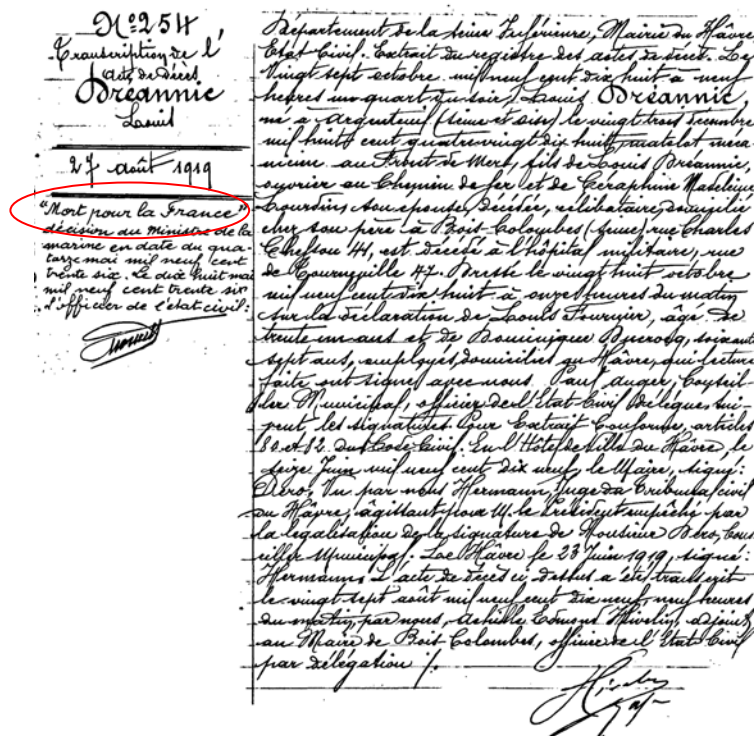 N° 254
Transcription de l'
acte de décès
Bréannic
Louis
27 août 1919
"Mort pour la France"
décision du Ministre de la
marine en date du qua-
torze mai mil neuf cent
trente six. Le dix huit mai
mil neuf cent trente six
L'officier de l'état civil:
Département de la Seine Inférieure, Mairie du Hâvre
Etat Civil. Extrait du registre des actes de décès. Le
vingt sept octobre mil neuf cent dix huit à neuf
heures un quart du soir, Louis Bréannic
né à Argenteuil (Seine et Oise) le vingt trois décembre
mil huit cent quatre vingt dix huit, matelot méca-
nicien au Front de Mer, fils de Louis Bréannic,
ouvrier au Chemin de fer et de Céraphine Madeleine
son épouse, décédée, célibataire, domicilié
chez son père à Bois-Colombes (Seine) rue Charles
Chefson 44, est décédé à l'hôpital militaire, rue
de Tourneville 47. Dressé le vingt huit octobre
mil neuf cent dix huit à onze heures du matin
sur la déclaration de Louis Fournier, âgé de
trente un ans et de Dominique Ducrocq, soixante
sept ans, employés, domiciliés au Hâvre, qui lecture
faite ont signé avec nous Paul Auger, Conseil-
ler Municipal, officier de l'Etat Civil délégué, sui-
vent les signatures. Pour Extrait Conforme, articles
80 et 82 du Code Civil. En l'Hôtel de Ville du Hâvre, le
seize Juin mil neuf cent dix neuf, le Maire, signé:
Déro, Vu par nous Hermann, Juge au Tribunal civil
du Hâvre, agissant pour M. le Président empêché par
la légalisation de la signature de Monsieur Déro, Cons
eiller Municipal. Le Hâvre le 23 Juin 1919, signé:
Hermann. L'acte de décès ci-dessus a été transcrit
le vingt sept août mil neuf cent dix neuf, neuf heures
du matin, par nous, Achille Edmond Hivelin, adjoint
au Maire de Bois Colombes, officier de l'Etat Civil
par délégation ./.